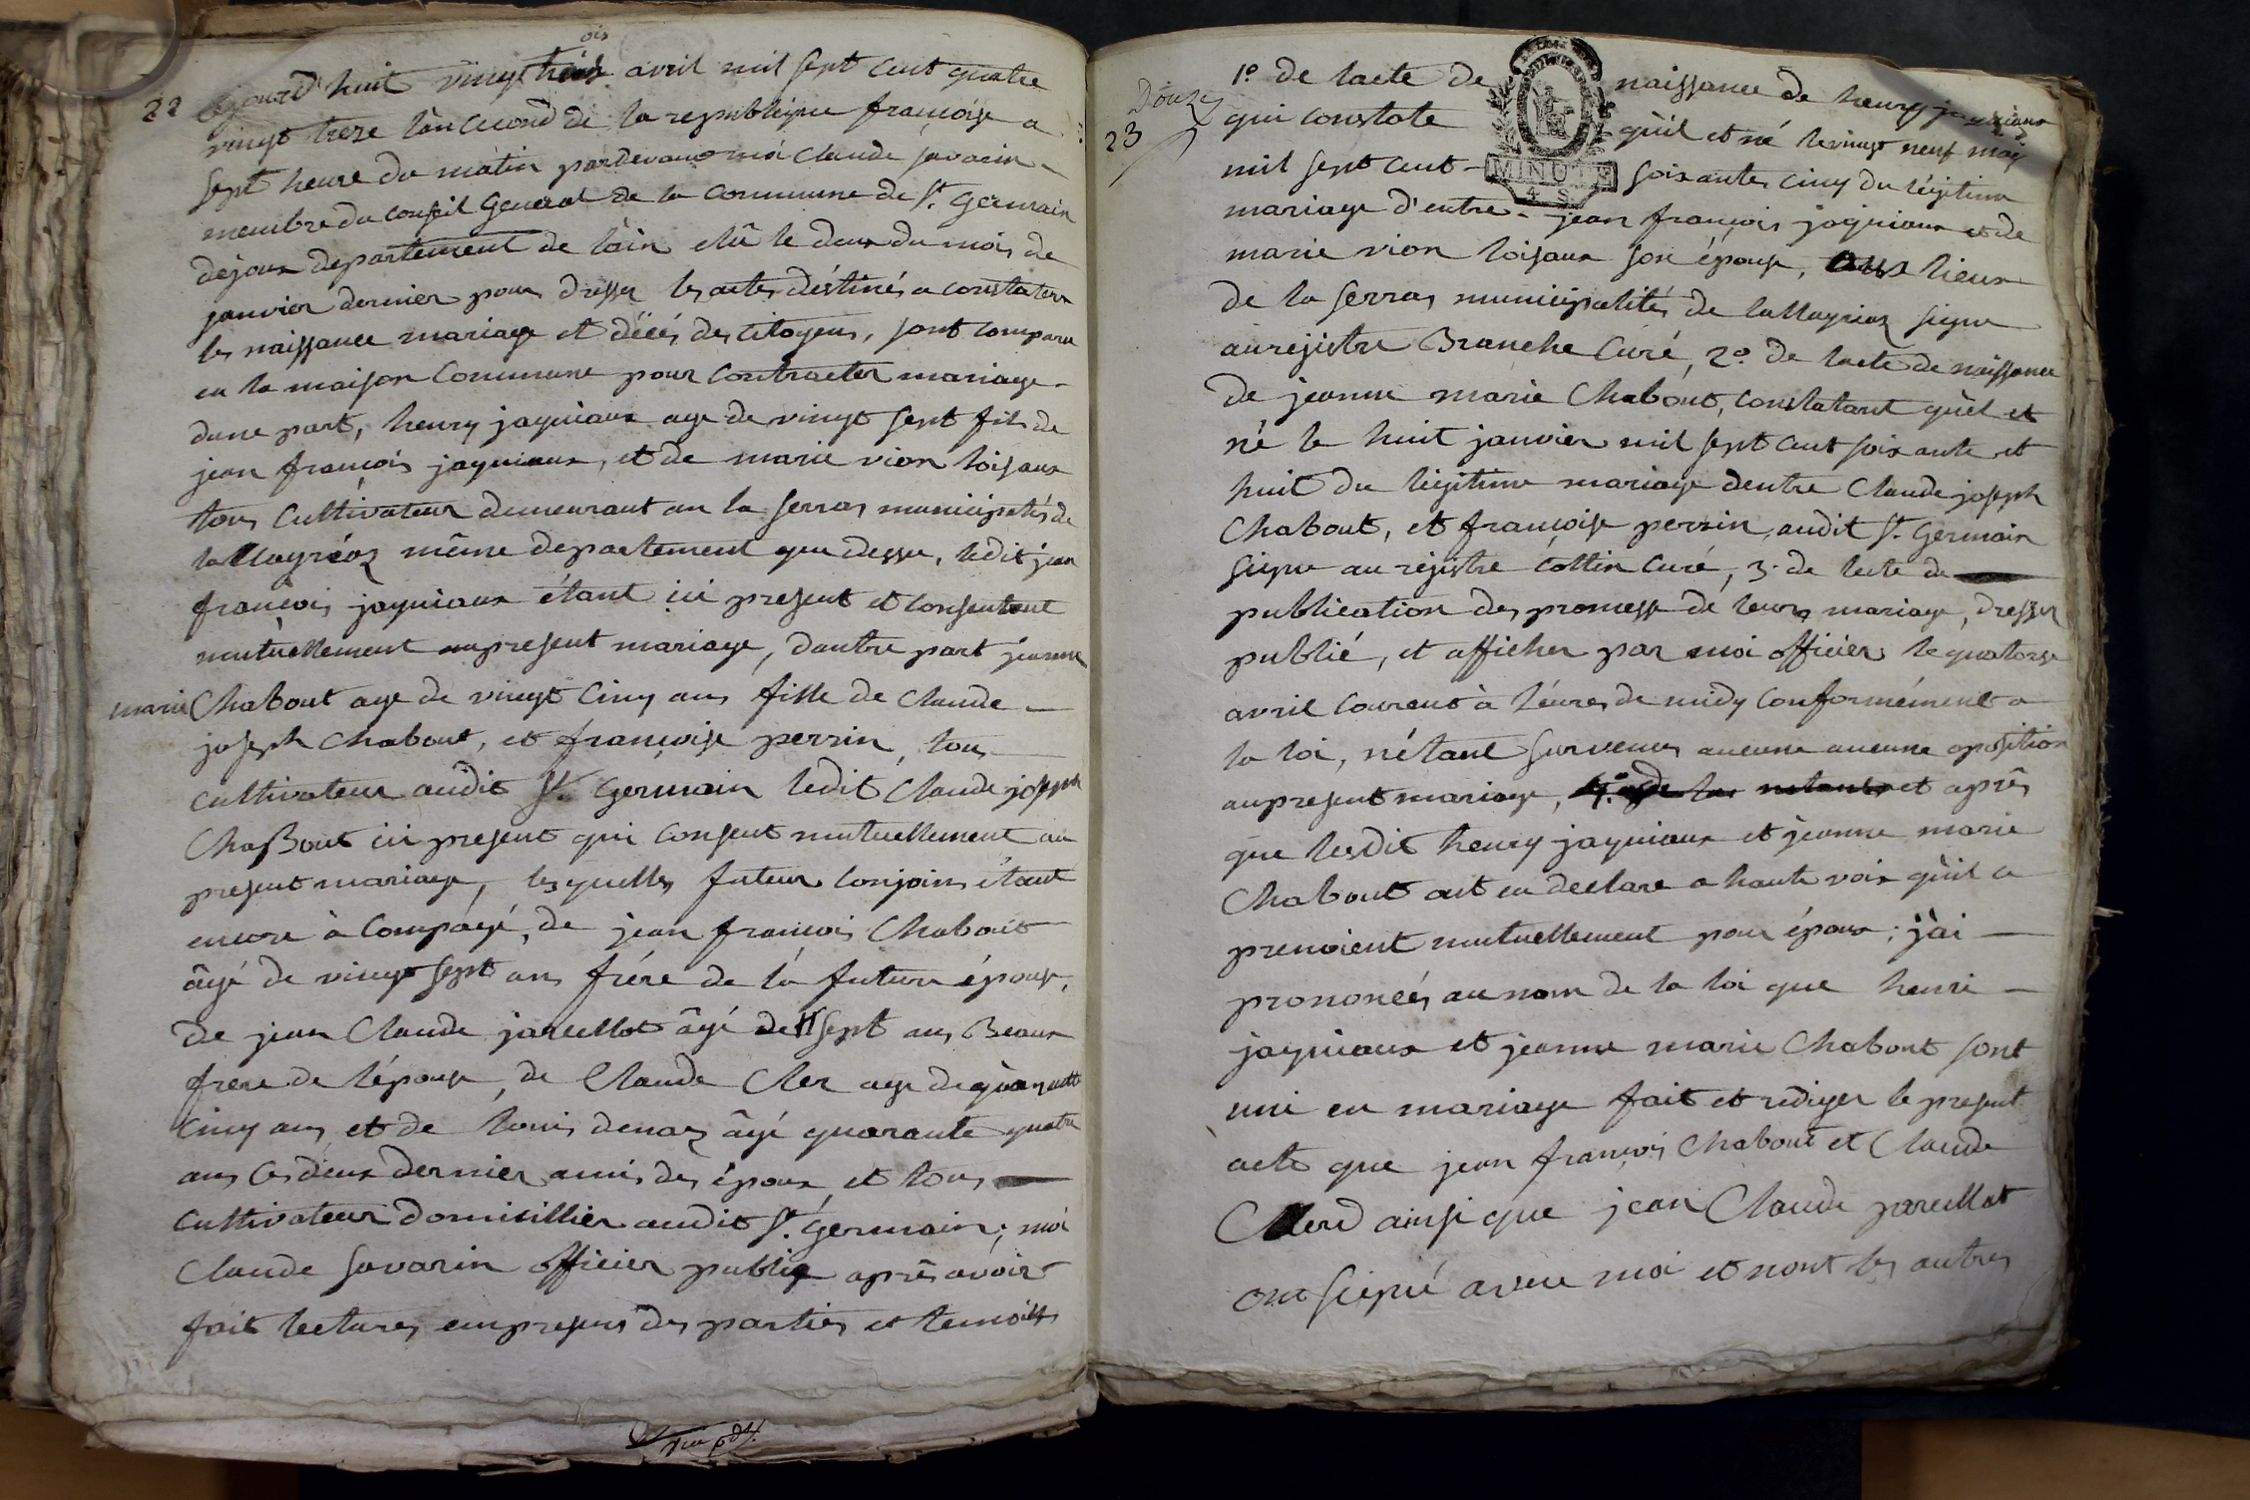 22
ajourd'huit vingt trois avril mil sept cent quatre
vingt treze l'an second de la republique françoise a
sept heure du matin pardevant moi Claude savarin
membre du conseil General de la commune de St. Germain
dejoux departement de l'ain elû le deux du mois de
janvier dernier pour dresser les actes déstinés a constater
les naissance mariage et décés des citoyens, sont comparu
en la maison Commune pour contracter mariage
dune part, henry jaquiaux age de vingt sept fils de
jean françois jaquiaux, et de marie vion loisaux
tous Cultivateur demeurant au la serras municipalités de
même departement que dessu, ledit jean
françois jaquiaux étant ici present et consentent
mutuellement aupresent mariage, dautre part jeanne
marie Chabout age de vingt cinq ans fille de Claude
joseph Chabout, et françoise perrin, tous
cultivateur audit St. Germain ledit Claude joseph
Chabout ici present qui consent mutuellement au
present mariage, lesquelles futeur conjoins étant
encore à compágé, de jean francois Chabout
âgé de vingt sept ans frére de la future épouse,
de jean Claude âgé de sept ans Beaux
frere de l'épouse, de Claude Cler age de quarante
cinq ans et de louis denaz âgé quarante quatre
ans Ces deux dernier amis des époux et tous
cultivateur domicillier audit St. Germain; moi
Claude savarin officier publiq aprês avoir
fait lectures empresens des parties et temoins
Vue pdt.
Douze
23
1º de lacte de naissance de henry jaquiaux
qui constate qu'il et né le vingt neuf may
MINUTE
4 S
mil sept cent soixantes cinq du légitime
mariage d'entre jean françois jaquiaux et de
marie vion loisaux son épouse, lieux
de la serras municipalités de signe
au rejistre Branche Curé, 2º de lacte de naissance
de jeanne marie Chabout, constatant qu'el et
né le huit janvier mil sept cent soixante et
huit du légitime mariage dentre Claude joseph
Chabout, et françoise perrin audit St. Germain
signe au réjistré Cottin Curé, 3. de lecte de
publication des promesse dé leurs mariage, dresser
publié, et afficher par moi officier le quatorse
avril courent à l'éures de midy conformément a
la loi, n'étant survenus aucune aucune oposition
aupresent mariage, et aprês
que lesdit henry jaquiaux et jeanne marie
Chabout ont eu declare a haute voix qu'il ce
prenoient mutuellement pour époux; j'ai
prononcés au nom de la loi que henri
jaquiaux et jeanne marie Chabout sont
uni en mariage fait et rediger le present
acte que jean françois Chabout et Claude
Clerd ainsi que jean Claude
ont signé avec moi et nont les autres